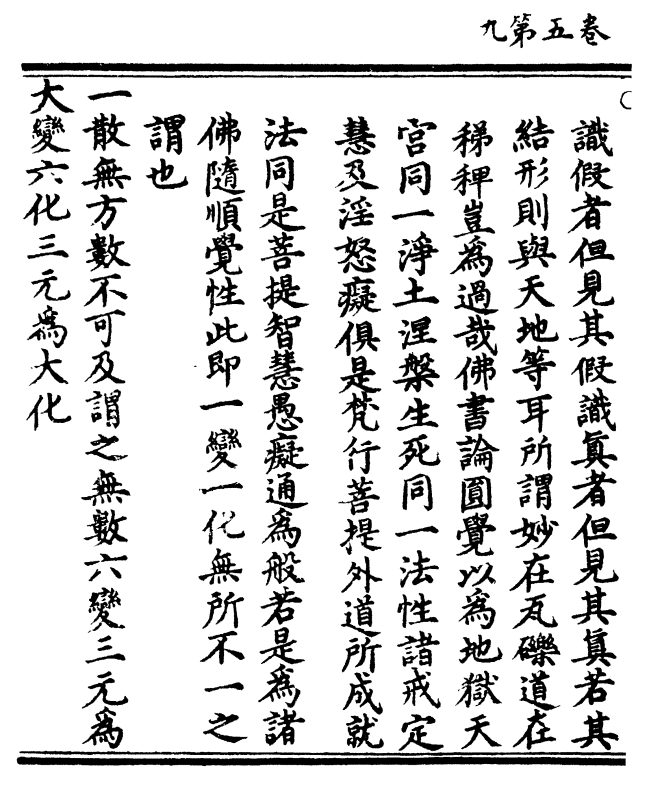 卷五第九
識假者但見其假識眞者但見其眞若其
結形則與天地等耳所謂妙在瓦礫道在
稊稗豈爲過哉佛書論圓覺以爲地獄天
宮同一淨土涅槃生死同一法性諸戒定
慧及淫怒癡俱是梵行菩提外道所成就
法同是菩提智慧愚癡通爲般若是爲諸
佛隨順覺性此即一變一化無所不一之
謂也
一散無方數不可及謂之無數六變三元爲
大變六化三元爲大化